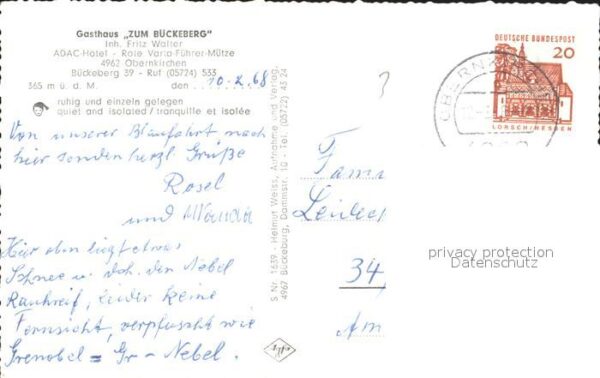 Gasthaus „ZUM BÜCKEBERG"
Inh. Fritz Walter
ADAC-Hotel - Rote Varta-Führer-Mütze
4962 Obernkirchen
Bückeberg 39 - Ruf (05724) 533
365 m ü. d. M. den 10.2.68
ruhig und einzeln gelegen
quiet and isolated / tranquille et isolée
Von unserer Blaufahrt nach
hier senden herzl. Grüße
Rosel
und Wanda
Hier oben liegt etwas
Schnee u. dch. den Nebel
Rauhreif, leider keine
Fernsicht, verpfuscht wie
Grenobel = Gr - Nebel.
S Nr. 1639 - Helmut Weiss, Aufnahme und Verlag
4967 Bückeburg, Dammstr. 10 - Tel. (05722) 45 24
efka
3
DEUTSCHE BUNDESPOST
20
LORSCH/HESSEN
Fami
34
Am
privacy protection
Datenschutz